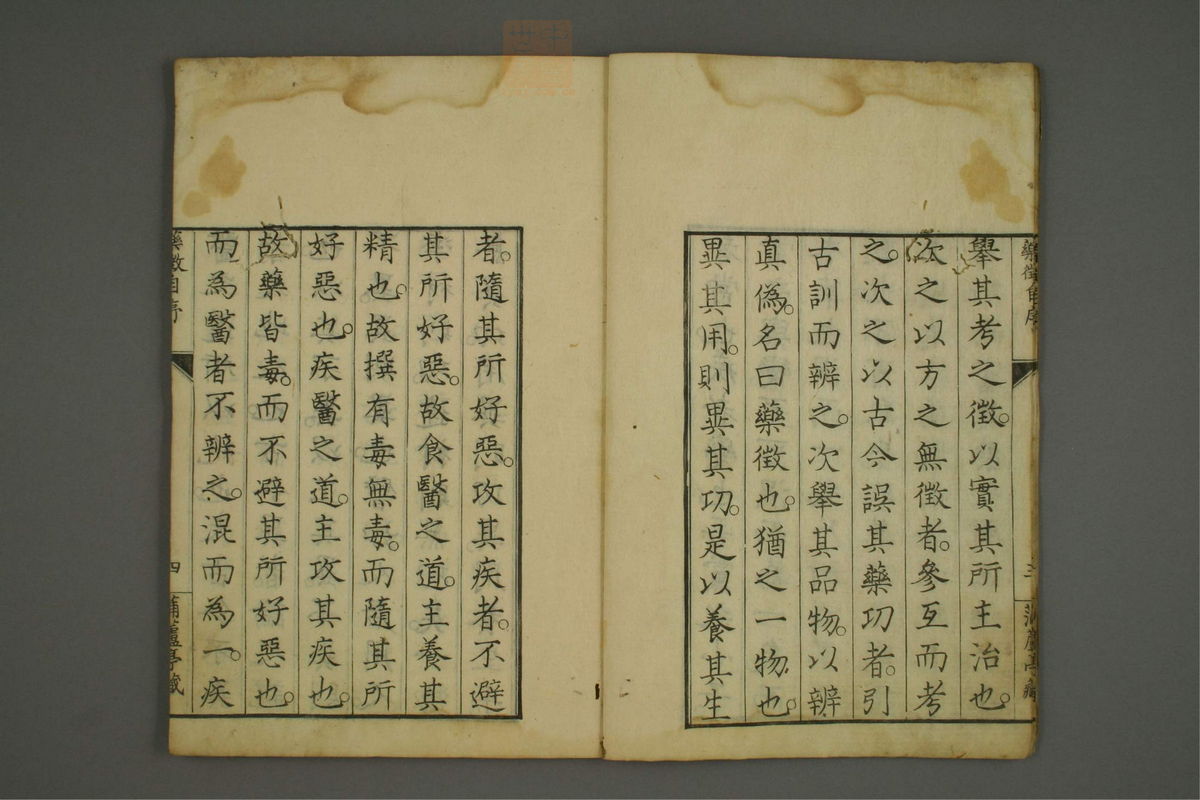 藥徵自序
舉其考之徵。以實其所主治也。
次之以方之無徵者。參互而考
之。次之以古今誤其藥功者。引
古訓而辨之。次舉其品物。以辨
真偽。名曰藥徵也。猶之一物也。
異其用。則異其功。是以養其生
者。隨其所好惡。攻其疾者。不避
其所好惡。故食醫之道。主養其
精也。故撰有毒無毒。而隨其所
好惡也。疾醫之道。主攻其疾也。
故藥皆毒。而不避其所好惡也。
而為醫者不辨之。混而為一。疾
藥徵自序
四
蘆亭藏